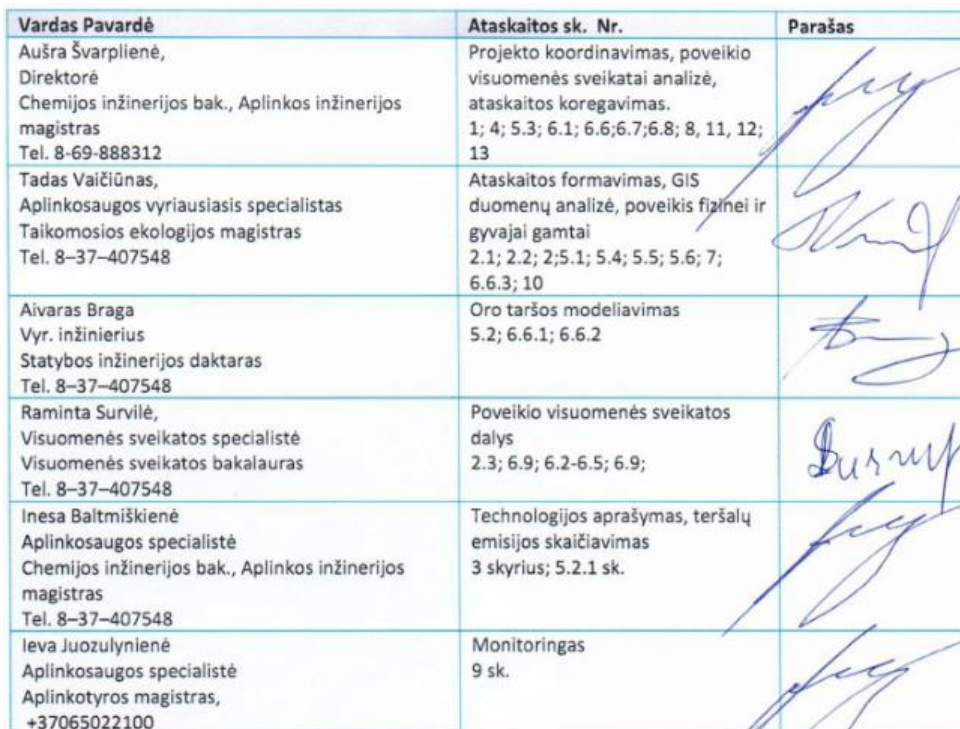 Vardas Pavardė
Ataskaitos sk. Nr.
Parašas
Aušra Švarplienė,
Direktorė
Chemijos inžinerijos bak., Aplinkos inžinerijos
magistras
Tel. 8-69-888312
Projekto koordinavimas, poveikio
visuomenės sveikatai analizė,
ataskaitos koregavimas.
1; 4; 5.3; 6.1; 6.6;6.7;6.8; 8, 11, 12;
13
Tadas Vaičiūnas,
Aplinkosaugos vyriausiasis specialistas
Taikomosios ekologijos magistras
Tel. 8–37–407548
Ataskaitos formavimas, GIS
duomenų analizė, poveikis fizinei ir
gyvajai gamtai
2.1; 2.2; 2;5.1; 5.4; 5.5; 5.6; 7;
6.6.3; 10
Aivaras Braga
Vyr. inžinierius
Statybos inžinerijos daktaras
Tel. 8–37–407548
Oro taršos modeliavimas
5.2; 6.6.1; 6.6.2
Raminta Survilė,
Visuomenės sveikatos specialistė
Visuomenės sveikatos bakalauras
Tel. 8–37–407548
Poveikio visuomenės sveikatos
dalys
2.3; 6.9; 6.2-6.5; 6.9;
Inesa Baltmiškienė
Aplinkosaugos specialistė
Chemijos inžinerijos bak., Aplinkos inžinerijos
magistras
Tel. 8–37–407548
Technologijos aprašymas, teršalų
emisijos skaičiavimas
3 skyrius; 5.2.1 sk.
Ieva Juozulynienė
Aplinkosaugos specialistė
Aplinkotyros magistras,
+37065022100
Monitoringas
9 sk.